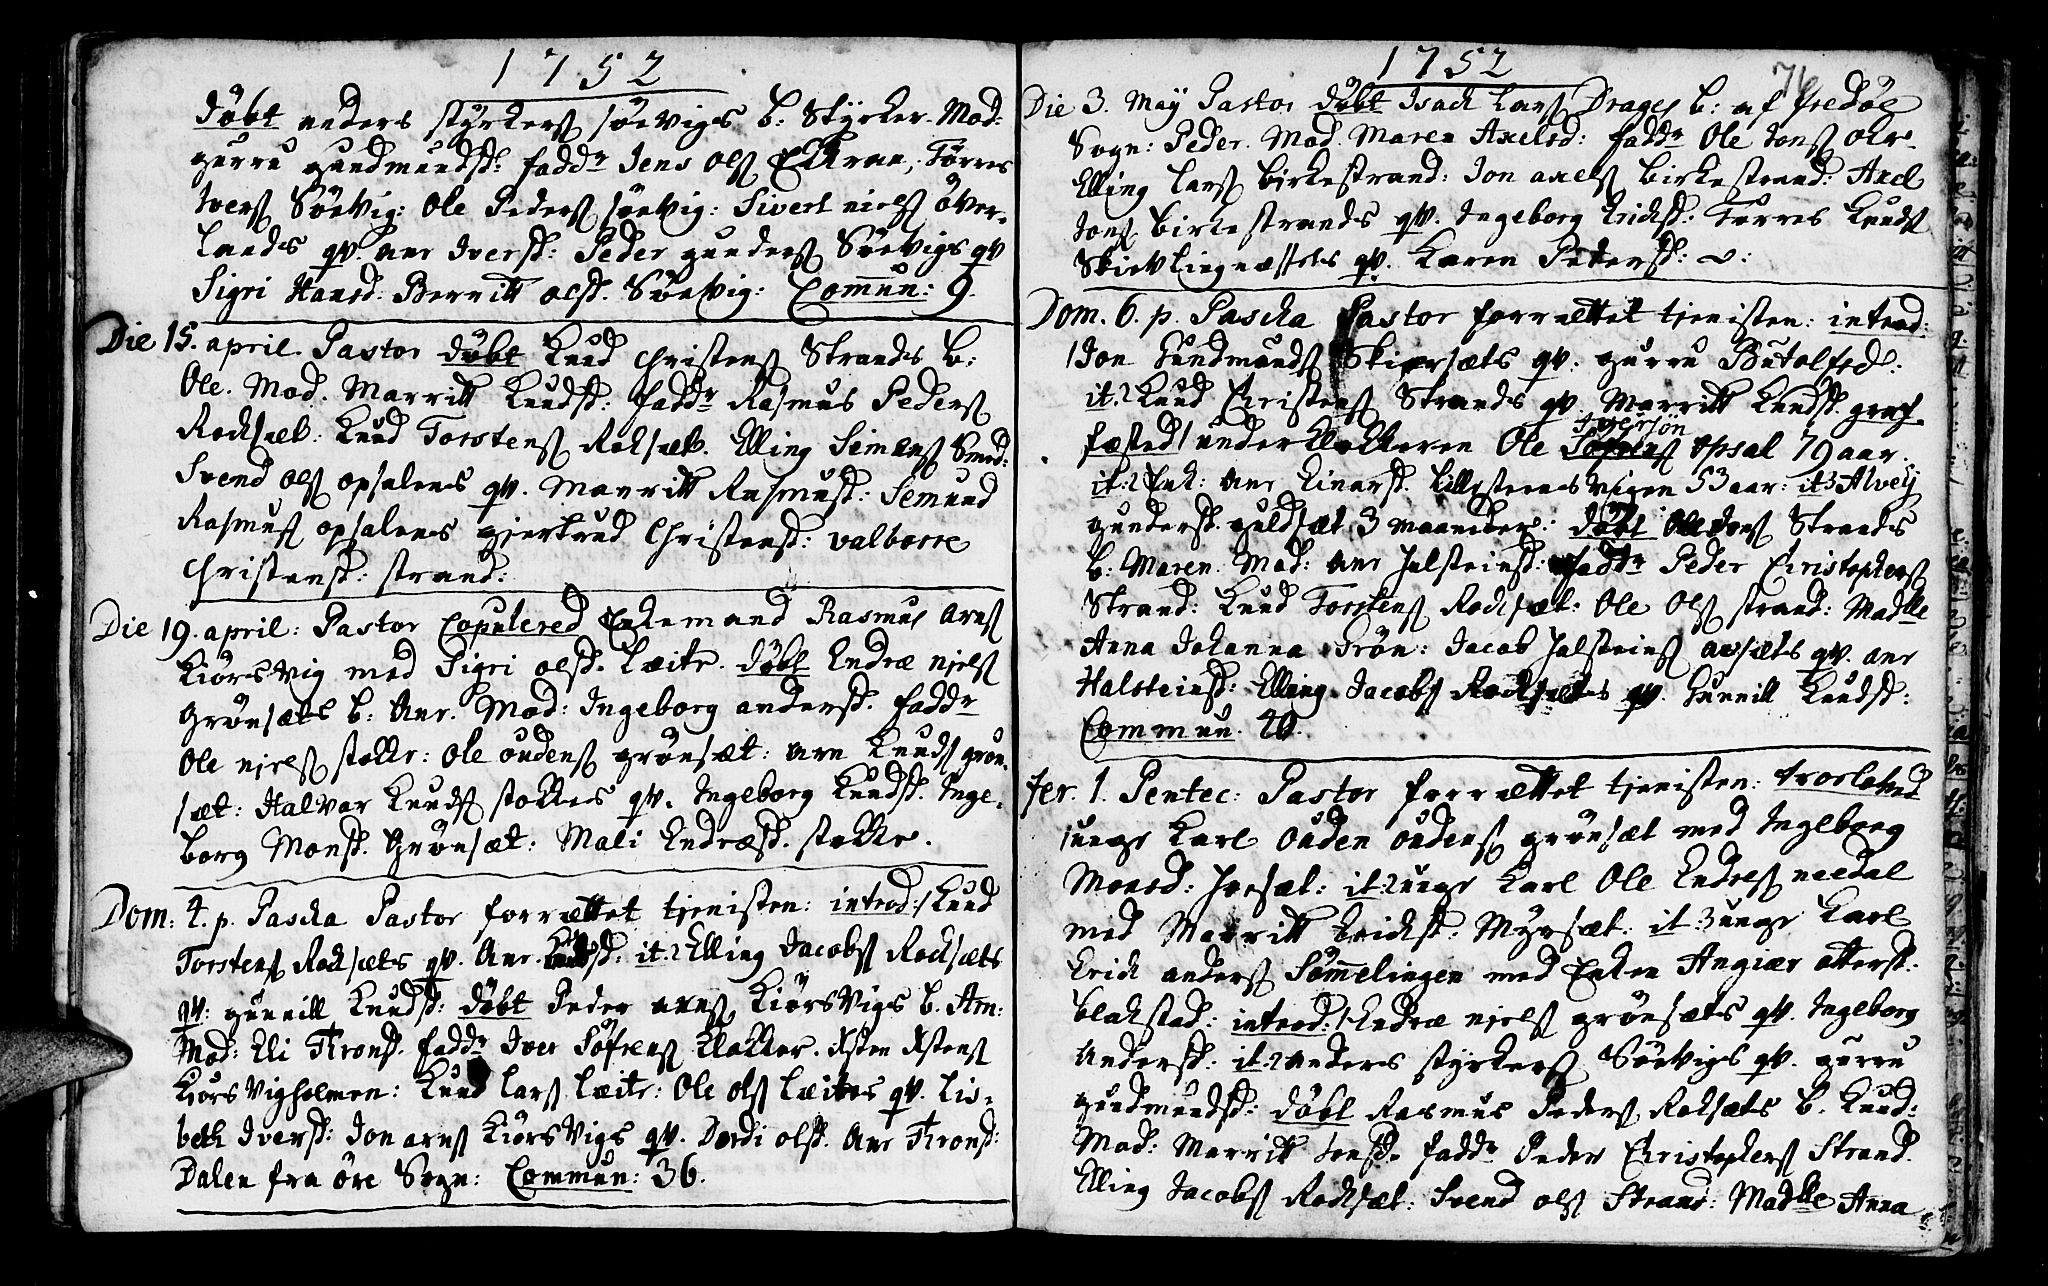 1752
döbt anders styrkers søevigs b: Styrker. Mod:
gurru gundmundsd: fadd.r Jens ols Eckran, Torres
Ivers Söevig: Ole Peders søevig: Sivert niels över-
lands qv. anr Iversd: Peder gunders Söevigs qv
Sigri Hansd: Berritt olsd. Söevig: Comun: 9.
Die 15. april. Pastor döbt Knud Christens Strands b:
Ole. Mod. Marritt Knudsd: fadd.r Rasmus Peders
Rocksæt: Knud Torstens Roksæt. Elling Simens Smed:
Svend ols opsalens qv. Marritt Rasmusd: Semund
Rasmus opsalens gjertrud Christensd: valborre
Christensd: strand:
Die 19. april: Pastor Copulered Enkemand Rasmus arns
Kiörsvig med Sigri olsd. Læite. döbt Endræ njels
Grönsæts b: Anr. Mod: Ingeborg andersd. fadd.r
Ole njels stokke: Ole oudens grönsæt: arn Knuds grön-
sæt: Halvar Knuds stokkes qv. Ingeborg Knudsd. Inge-
borg Monsd. Grönsæt: Mali Endræsd. stokke.
Dom: 4. p. Pascha Pastor forrættet tjenisten: introd: 1 Knud
Torstens Rocksæts qv. Anr. sd: it. 2 Elling Jacobs Rocksæts
qv: gunnill Knudsd: döbt Peder arns Kiörsvigs b. Arn:
Mod: Eli Tronsd. fadd.r Iver Söfrens klokker. Østen Østens
Kiörsvigholmen: Knud Lars Læite: Ole ols Læites qv. Lis-
beth Iversd: Jon arns Kiörsvigs qv. Dordi olsd. Anr Tronsd:
Dalen fra öre Sogn: Commun: 36.
1752
76
Die 3. May Pastor döbt Isach Lars Drages b: af fredöe
Sogn: Peder. Mod. Maren Axelsd: fadd.r Ole Jons
Elling Lars birkestrand: Jon axels birkestrand: Axel
Jons birkestrands qv. Ingeborg Ericksd: Torres Knuds
Skievlingnæssets qv. Karen Pedersd:
Dom. 6. p. Pascha Pastor forrættet tjenisten: introd:
1 Jon Gundmunds Skiersæts qv: gurru Botolfsd:
it. 2 Knud Christens Strands qv Marritt Knudsd. graf-
fæsted 1 underklokkeren Ole Iversön opsal 79 aar.
it. 2 Enk: Anr Einersd. Lillesteensvigen 53 aar: it 3 Alvelj
gundersd. guldsæt 3 maaneder: döbt Ole Jons Strands
b: Maren. Mod: Anr Halsteinsd: fadd.r Peder Christophers
Strand: Knud Torstens Rocksæt: Ole Ols strand: Madlle
Anna Johanna Trön: Jacob Halsteins aæsæts qv. anr
Halsteinsd: Elling Jacobs Rocksæts qv. Gunnill Knudsd:
Commun. 40.
fer. 1. Pentec: Pastor forrættet tjenisten: troelofved
1 unge Karl Ouden Oudens grönsæt med Ingeborg
Monsd: Joesæt: it. 2 unge Karl Ole Endres needal
med Marritt Ericksd: Myrsæt: it 3 unge Karl
Erick anders Sömmelingen med Enken Angiær ottersd:
Blakstad: introd: 1 Endræ njels grönsæts qv. Ingeborg
Andersd: it. 2 anders styrkers Söevigs qv. gurru
gundmundsd: döbt Rasmus Peders. Roksæts b. Knud:
Mod: Marritt Jensd. fadd.r Peder Christophers Strand
Elling Jacobs Rocksæt: Svend ols Strand: Madlle Anna